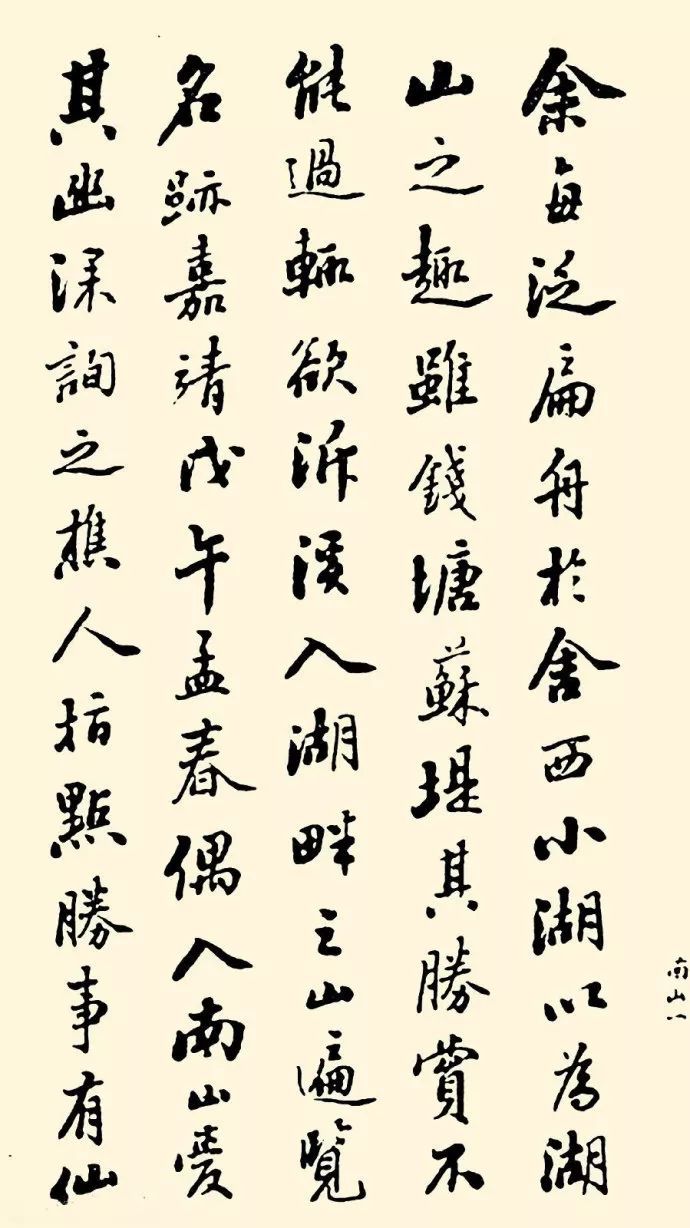 余每泛扁舟於舍西小湖以為湖
山之趣雖錢塘蘇堤其勝賞不
能過輒欲泝溪入湖畔之山遍覽
名跡嘉靖戊午孟春偶入南山愛
其幽深詢之樵人指點勝事有仙
南山八